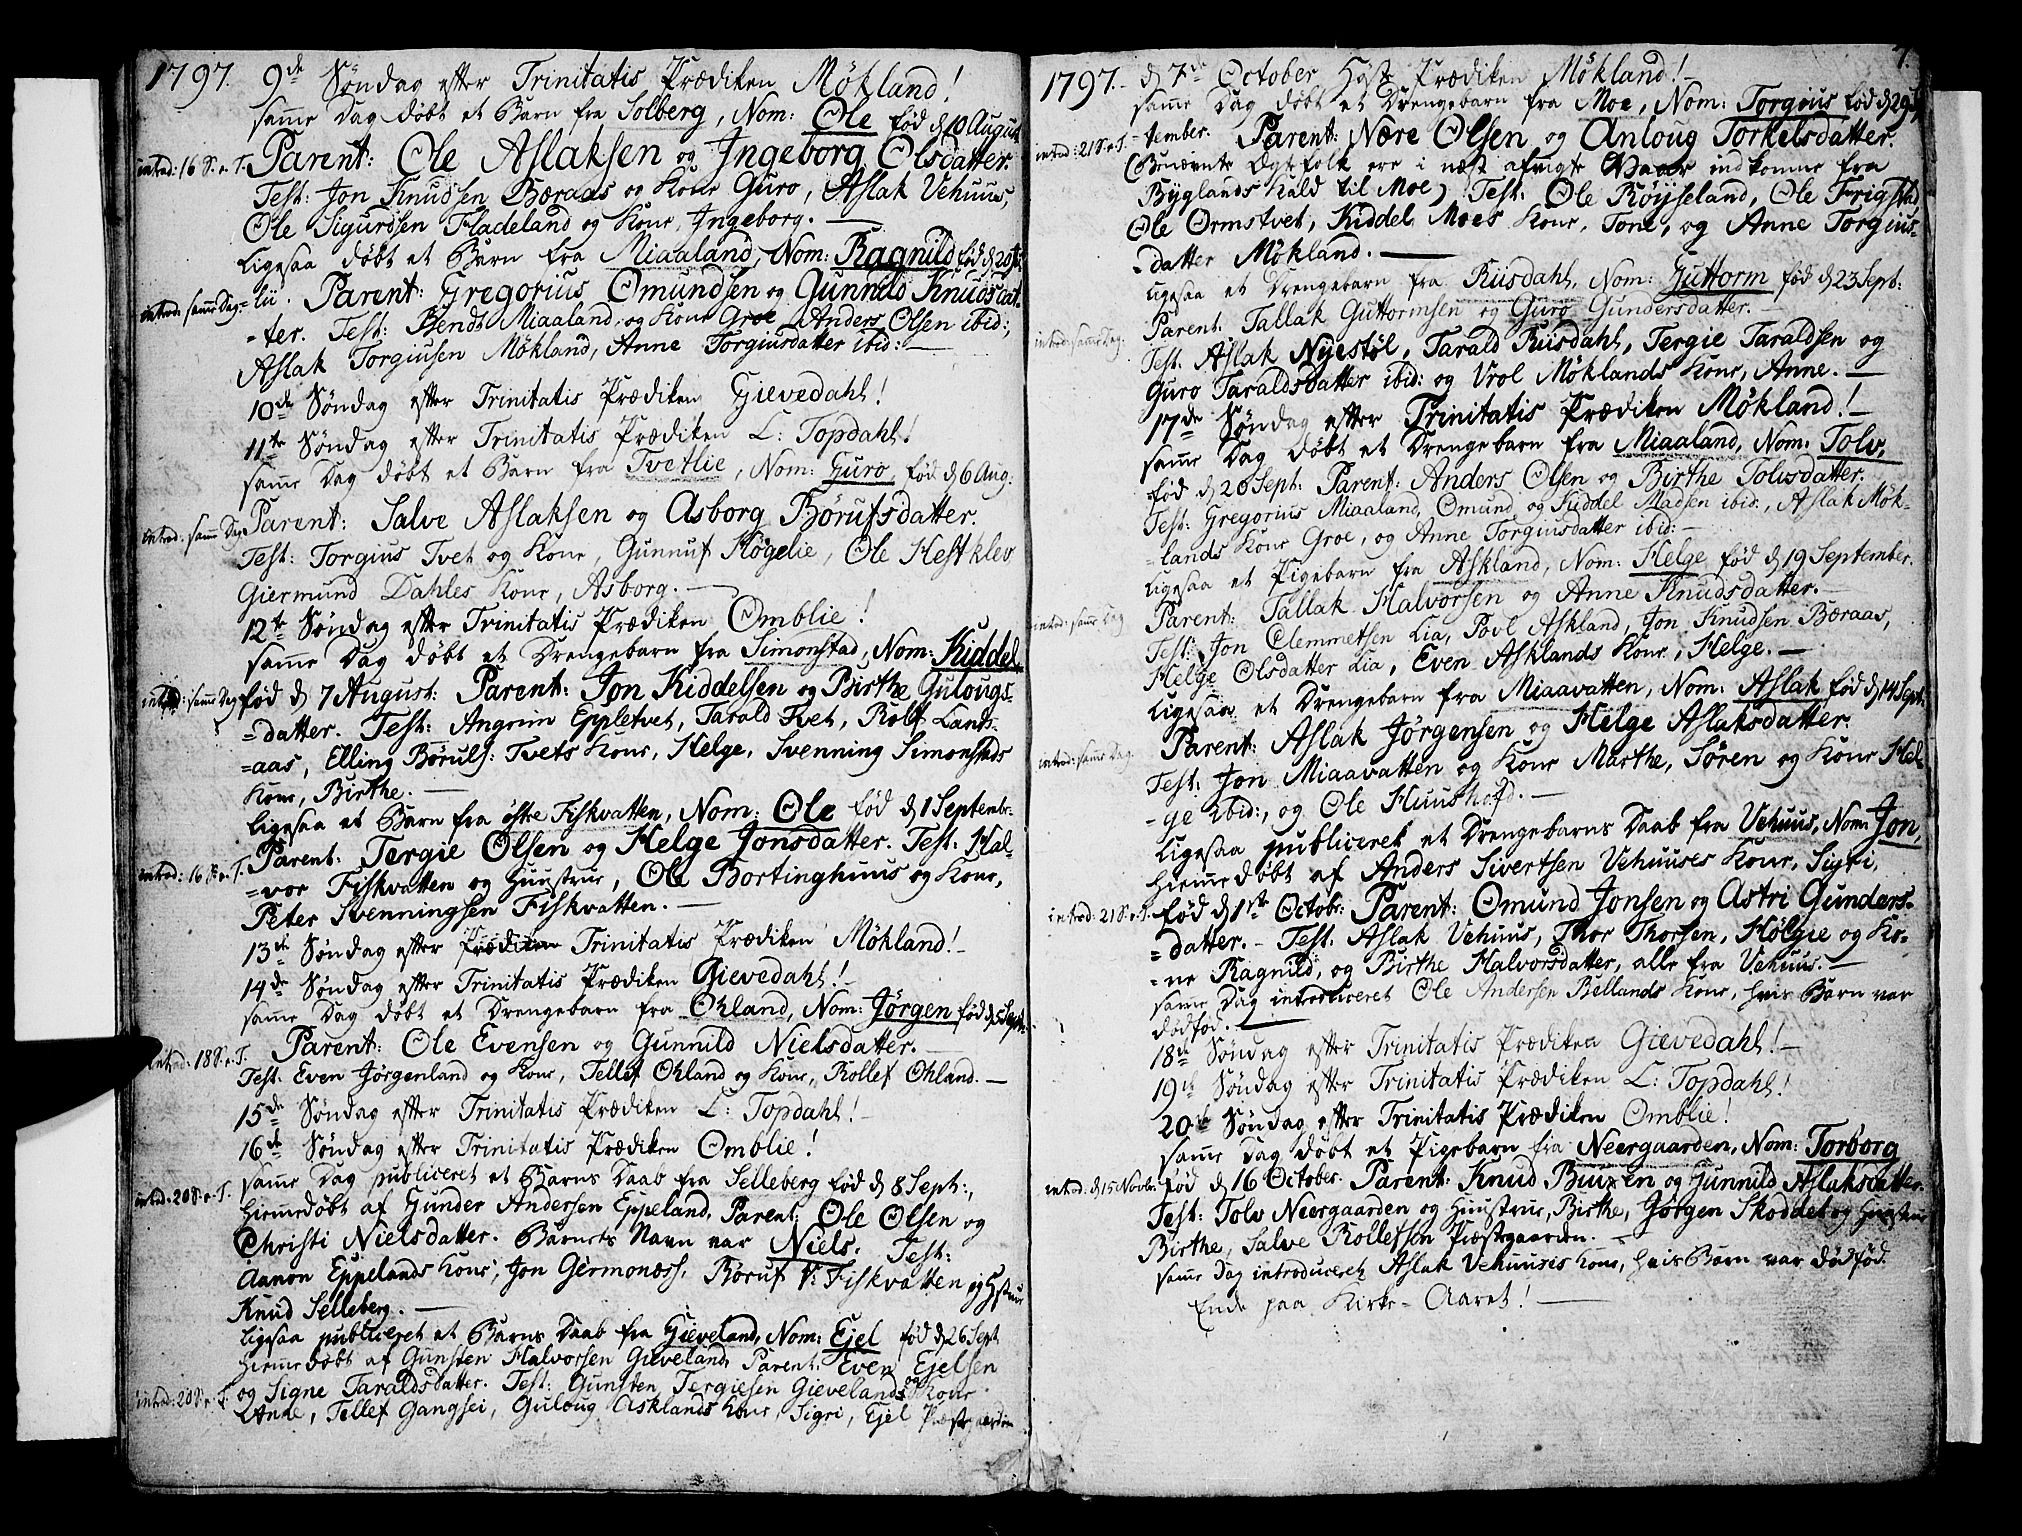 1797. 9de Søndag efter Trinitatis Prædiken Møkland!
samme Dag døbt et Barn fra Solberg, Nom: Ole fød d 10 August
introd: 16 S. e. T. Parent: Ole Aslaksen og Ingeborg Olsdatter.
Test: Jon Knudsen Børaas og Kone Guro, Aslak Vehuus,
Ole Sigurdsen Fladeland og Kone, Ingeborg. —
ligesaa døbt et Barn fra Miaaland, Nom: Ragnild fød d 20 Ju-
introd: samme Dag. =lii. Parent: Gregorius Omundsen og Gunnild Knudsdat-
=ter. Test: Bendt Miaaland og Kone Groe, Anders Olsen ibid:,
Aslak Torgiusen Møkland, Anne Torgiusdatter ibid: —
10de Søndag efter Trinitatis Prædiken Gievedahl!
11te Søndag efter Trinitatis Prædiken L: Topdahl!
samme Dag døbt et Barn fra Tvetlie, Nom: Guro fød d 6 Aug:
introd: samme Dag Parent: Salve Aslaksen og Asborg Børufsdatter.
Test: Torgius Tvet og Kone, Gunnuf Høgelie, Ole Hestklev
Giermund Dahles Kone, Asborg. —
12te Søndag efter Trinitatis Prædiken Omblie!
samme Dag døbt et Drengebarn fra Simonstad, Nom: Kiddel
introd: samme Dag fød d 7 August: Parent: Jon Kiddelsen og Birthe Gulougs-
=datter. Test: Angrim Eppletvet, Tarald Tvet, Rolf Lants-
=aas, Elling Børuls: Tvets Kone, Helge, Svenning Simonstads
Kone, Birthe. —
ligesaa et Barn fra østre Fiskvatten, Nom: Ole fød d 1 Septembr:
introd: 16 S. e. T. Parent: Tergie Olsen og Helge Jonsdatter. Test: Hal-
=vor Fiskvatten og Huustrue, Ole Bortinghuus og Kone,
Peter Svenningsen Fiskvatten. —
13de Søndag efter Prædiken Trinitatis Prædiken Møkland! —
14de Søndag efter Trinitatis Prædiken Gievedahl! —
samme Dag døbt et Drengebarn fra Ohland, Nom: Jørgen fød d 5 Sept:
introd: 18 S. e. T. Parent: Ole Evensen og Gunnild Nielsdatter. —
Test: Even Jørgenland og Kone, Tellef Ohland og Kone, Rollef Ohland. —
15de Søndag efter Trinitatis Prædiken L: Topdahl! —
16de Søndag efter Trinitatis Prædiken Omblie!
samme Dag publiceret et Barns Daab fra Selleberg fød d 8 Sept:,
introd: 20 S. e. T. hiemedøbt af Gunder Andersen Eppeland. Parent: Ole Olsen og
Christi Nielsdatter. Barnets Navn var Niels. Test:
Aanon Eppelands Kone, Jon Germonæss, Børuf V: Fiskvatten og Hustrue
Knud Selleberg. —
ligesaa publiceret et Barns Daab fra Gieveland, Nom: Ejel fød d 26 Sept
hiemedøbt af Gunsten Halvorsen Gieveland, Parent: Even Ejelsen
introd: 20 S. e. T. og Signe Taraldsdatter. Test: Gunsten Tergiesen Gievelands og Kone
Anne, Tellef Gangsei, Guloug Asklands Kone, Sigri, Ejel Præstegaarden
7.
1797. d 7de October Høst Prædiken Møkland! —
samme Dag døbt et Drengebarn fra Moe, Nom: Torgius fød d 29 Sep-
introd: 21 S. e. T. =tember. Parent: Nære Olsen og Anloug Torkelsdatter.
(Benævnte Egtefolk ere i næst afvigte Vaar indkomne fra
Byglands Kald til Moe) Test: Ole Røysseland, Ole Frigstad
Ole Ormstvet, Kiddel Moes Kone, Tone, og Anne Torgius-
=datter Møkland. —
ligesaa et Drengebarn fra Risdahl, Nom: Guttorm fød d 23 Sept:
introd: samme Dag. Parent: Tallak Guttormsen og Guro Gundersdatter. —
Test: Aslak Nyestøl, Tarald Risdahl, Tergie Taraldsen og
Guro Taraldsdatter ibid: og Vrol Møklands Kone, Anne. —
17de Søndag efter Trinitatis Prædiken Møkland! —
samme Dag døbt et Drengebarn fra Miaaland, Nom: Tolv,
fød d 26 Sept: Parent: Anders Olsen og Birthe Tolvsdatter.
Test: Gregorius Miaaland, Omund og Kiddel Madsen ibid:, Aslak Møk-
=lands Kone Groe, og Anne Torgiusdatter ibid: —
ligesaa et Pigebarn fra Askland, Nom: Helge fød d 19 September.
introd: samme Dag Parent: Tallak Halvorsen og Anne Knudsdatter. —
Test: Jon Clemmetsen Lia, Povl Askland, Jon Knudsen Børaas,
Helge Olsdatter Lia, Even Asklands Kone, Helge. —
ligesaa et Drengebarn fra Miaavatten, Nom: Aslak fød d 14 Sept:
introd: samme Dag. Parent: Aslak Jørgensen og Helge Aslaksdatter.
Test: Jon Miaavatten og Kone Marthe, Søren og Kone Hel-
-ge ibid:, og Ole Huushofd. —
ligesaa publiceret et Drengebarns Daab fra Vehuus, Nom: Jon,
hiemedøbt af Anders Sivertsen Vehuuses Kone, Sigri,
introd: 21 S. e. T. fød d 1ste Octobr: Parent: Omund Jonsen og Astri Gunders-
=datter. — Test: Aslak Vehuus, Thor Thorsen, Hølgie og Ko-
=ne Ragnild, og Birthe Halvorsdatter, alle fra Vehuus. —
samme Dag introduceret Ole Andersen Bellands Kone, hvis Barn var
dødfød. —
18de Søndag efter Trinitatis Prædiken Gievedahl! —
19de Søndag efter Trinitatis Prædiken L: Topdahl!
20de Søndag efter Trinitatis Prædiken Omblie!
samme Dag døbt et Pigebarn fra Neergaarden, Nom: Torborg
introd: d 15 Novbr. fød d 16 October. Parent: Knud Buuxen og Gunnild Aslaksdatter.
Test: Tolv Neergaarden og Huustrue, Birthe, Jørgen Skoddet og Huustrue
Birthe, Salve Rollefsen Præstegaarden. —
samme Dag introduceret Aslak Vehuuses Kone, hvis Barn var dødfød.
Ende paa Kirke-Aaret! —